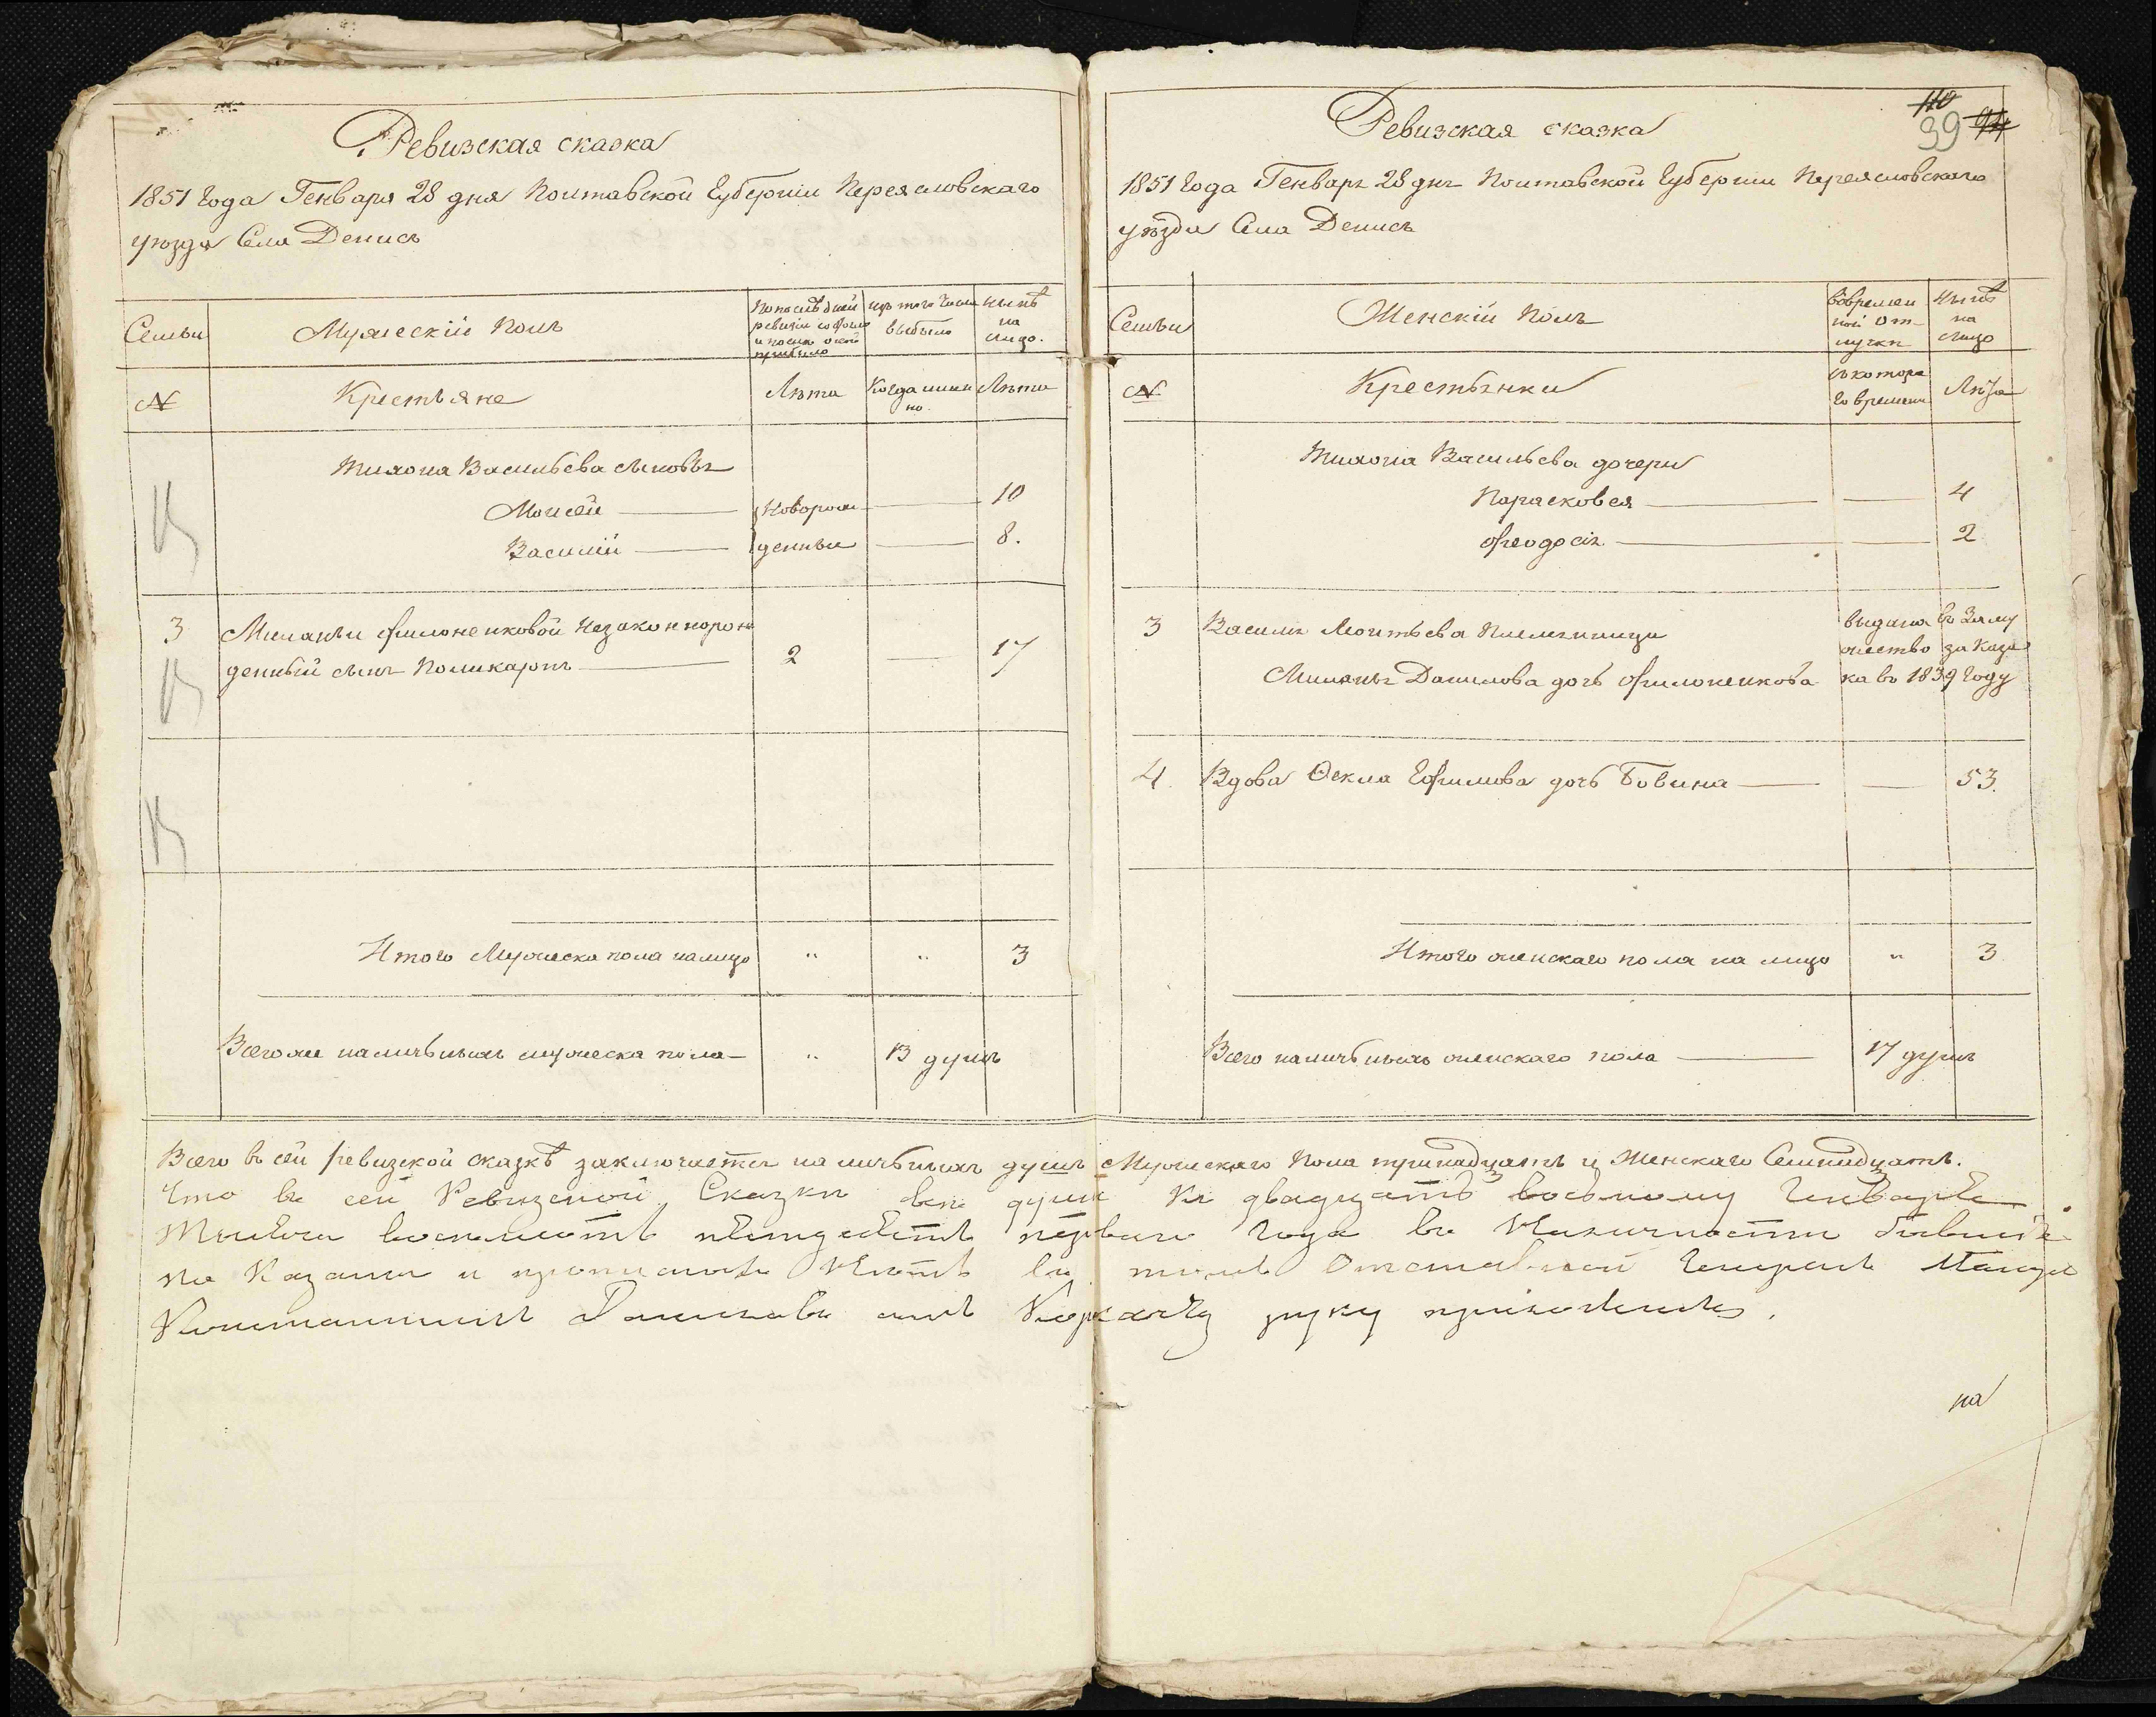 Ревизская сказка
1851 года Генваря 28 дня Полтавской Губернии Переясловскаго
уезда Села Денисъ
Семьи
Мужескій полъ
По последней
ревизіи состояло
и после оной
прибыло
изъ того числа
выбыло
ныне
на
лицо.
№
Крестьяне
Лета
Когда имян
но.
Лета
Тихона Васильева сыновья
Моисей
Новорож
10
Василій
денные
8.
3
Миланьи Филоненковой Незаконнорож
денный сынъ Поликарпъ
2
17
Итого Мужеска пола налицо
"
"
3
Всего же наличныхъ мужеска пола
"
13 душъ
110
39
94
Ревизская сказка
1851 года Генваря 28 дня Полтавской Губернии Переясловскаго
уезда Села Денисъ
Семьи
Женскій полъ
Во времен
ной от
лучки
Ныне
на
лицо
№
Крестьянки
съ котора
го времени
Лета
Тихона Васильева дочери
Парасковея
4
Феодосія
2
3
Василія Леонтьева племянница
Миланья Данилова дочь Филоненкова
выдана въ заму
жество за каза
ка въ 1839 году
4.
Вдова Ѳекла Ефимова дочь Бовина
53.
Итого женскаго пола на лицо
"
3
Всего наличныхъ женскаго пола
17 душъ
Всего въ сей ревизской сказкѣ заключается наличныхъ душъ Мужескаго Пола тринадцать и Женскаго Семнадцать.
Что въ сей Ревизской Сказки все души къ двадцать восьмому Генваря
Тысяча восемьсотъ пятдесятъ перваго года въ Наличности бывшія
по Казаны и прописныхъ Нетъ въ томъ Отставной
Константинъ руку приложилъ.
на